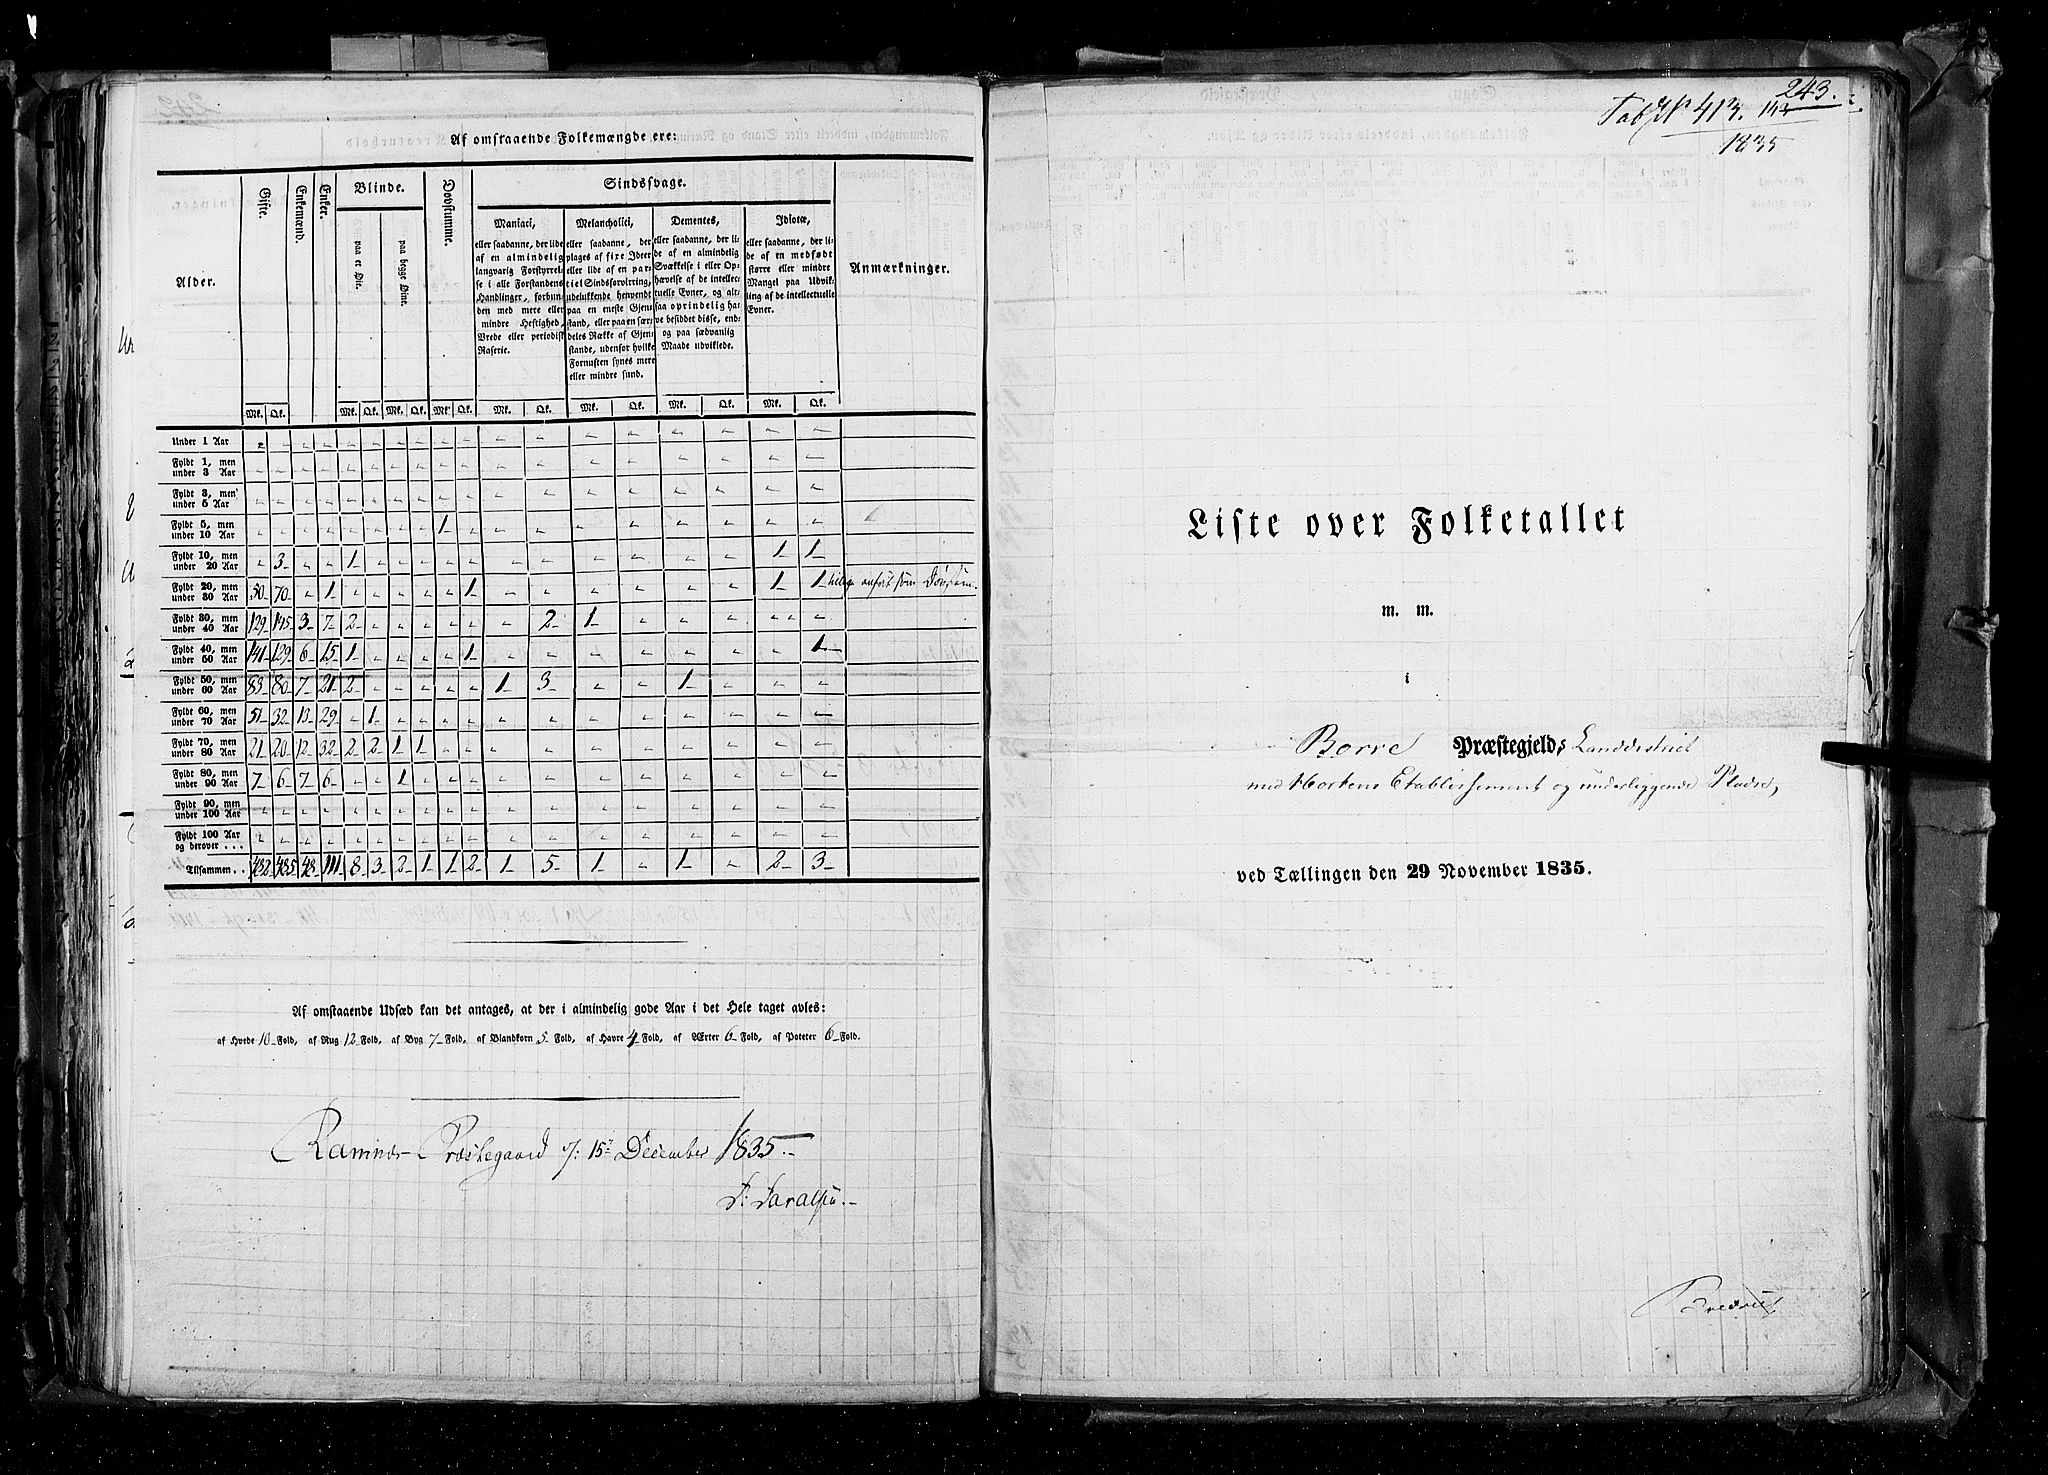 Af omstaaende Folkemængde ere:
Alder. Gifte. Enkemænd. Enker. Blinde. Døvstumme. Sindssvage. Anmærkninger.
paa et Øie. paa begge Øine.
Maniaci, eller saadanne, der lide af en almindelig langvarig Forstyrrelse i alle Forstandens Handlinger, forbunden med mere eller mindre Heftighed, Vrede eller periodisk Raserie.
Melancholici, eller saadanne, der plages af fixe Ideer eller lide af en partiel Sindsforvirring, udelukkende henvendt paa en eneste Gjenstand, eller paa en særdeles Række af Gjenstande, udenfor hvilke Fornuften synes mere eller mindre sund.
Dementes, eller saadanne, der lide af en almindelig Svækkelse i eller Ophævelse af de intellectuelle Evner, og altsaa oprindelig have besiddet disse, endog paa sædvanlig Maade udviklede.
Idiotæ, eller saadanne, der lide af en medfødt større eller mindre Mangel paa Udvikling af de intellectuelle Evner.
Mk. Qk. Mk. Qk. Mk. Qk. Mk. Qk. Mk. Qk. Mk. Qk. Mk. Qk. Mk. Qk.
Under 1 Aar
Fyldt 1, men under 3 Aar
Fyldt 3, men under 5 Aar
Fyldt 5, men under 10 Aar 1
Fyldt 10, men under 20 Aar 3 1 1 1
Fyldt 20, men under 30 Aar 50 70 1 1 1 1 anført som
Fyldt 30, men under 40 Aar 129 145 3 7 2 2 1
Fyldt 40, men under 50 Aar 141 129 6 15 1 1 1
Fyldt 50, men under 60 Aar 83 80 7 21 2 1 3 1
Fyldt 60, men under 70 Aar 51 32 13 29 1
Fyldt 70, men under 80 Aar 21 20 12 32 2 2 1 1
Fyldt 80, men under 90 Aar 7 6 7 6 1
Fyldt 90, men under 100 Aar
Fyldt 100 Aar og derover . . .
Tilsammen . . 482 485 48 111 8 3 2 1 1 2 1 5 1 - 1 - 2 3
Af omstaaende Udsæd kan det antages, at der i almindelig gode Aar i det Hele taget avles:
af Hvede 10 Fold, af Rug 12 Fold, af Byg 7 Fold, af Blandkorn 5 Fold, af Havre 4 Fold, af Ærter 6 Fold, af Poteter 6 Fold.
Ramnæs Præstegaard d: 15de December 1835.
243.
Tab. N 413. 1835
Liste over Folketallet
m. m.
i
Borre Præstegjelds Landdistrict
med Hortens Etablissement og underliggende Pladse,
ved Tællingen den 29 November 1835.